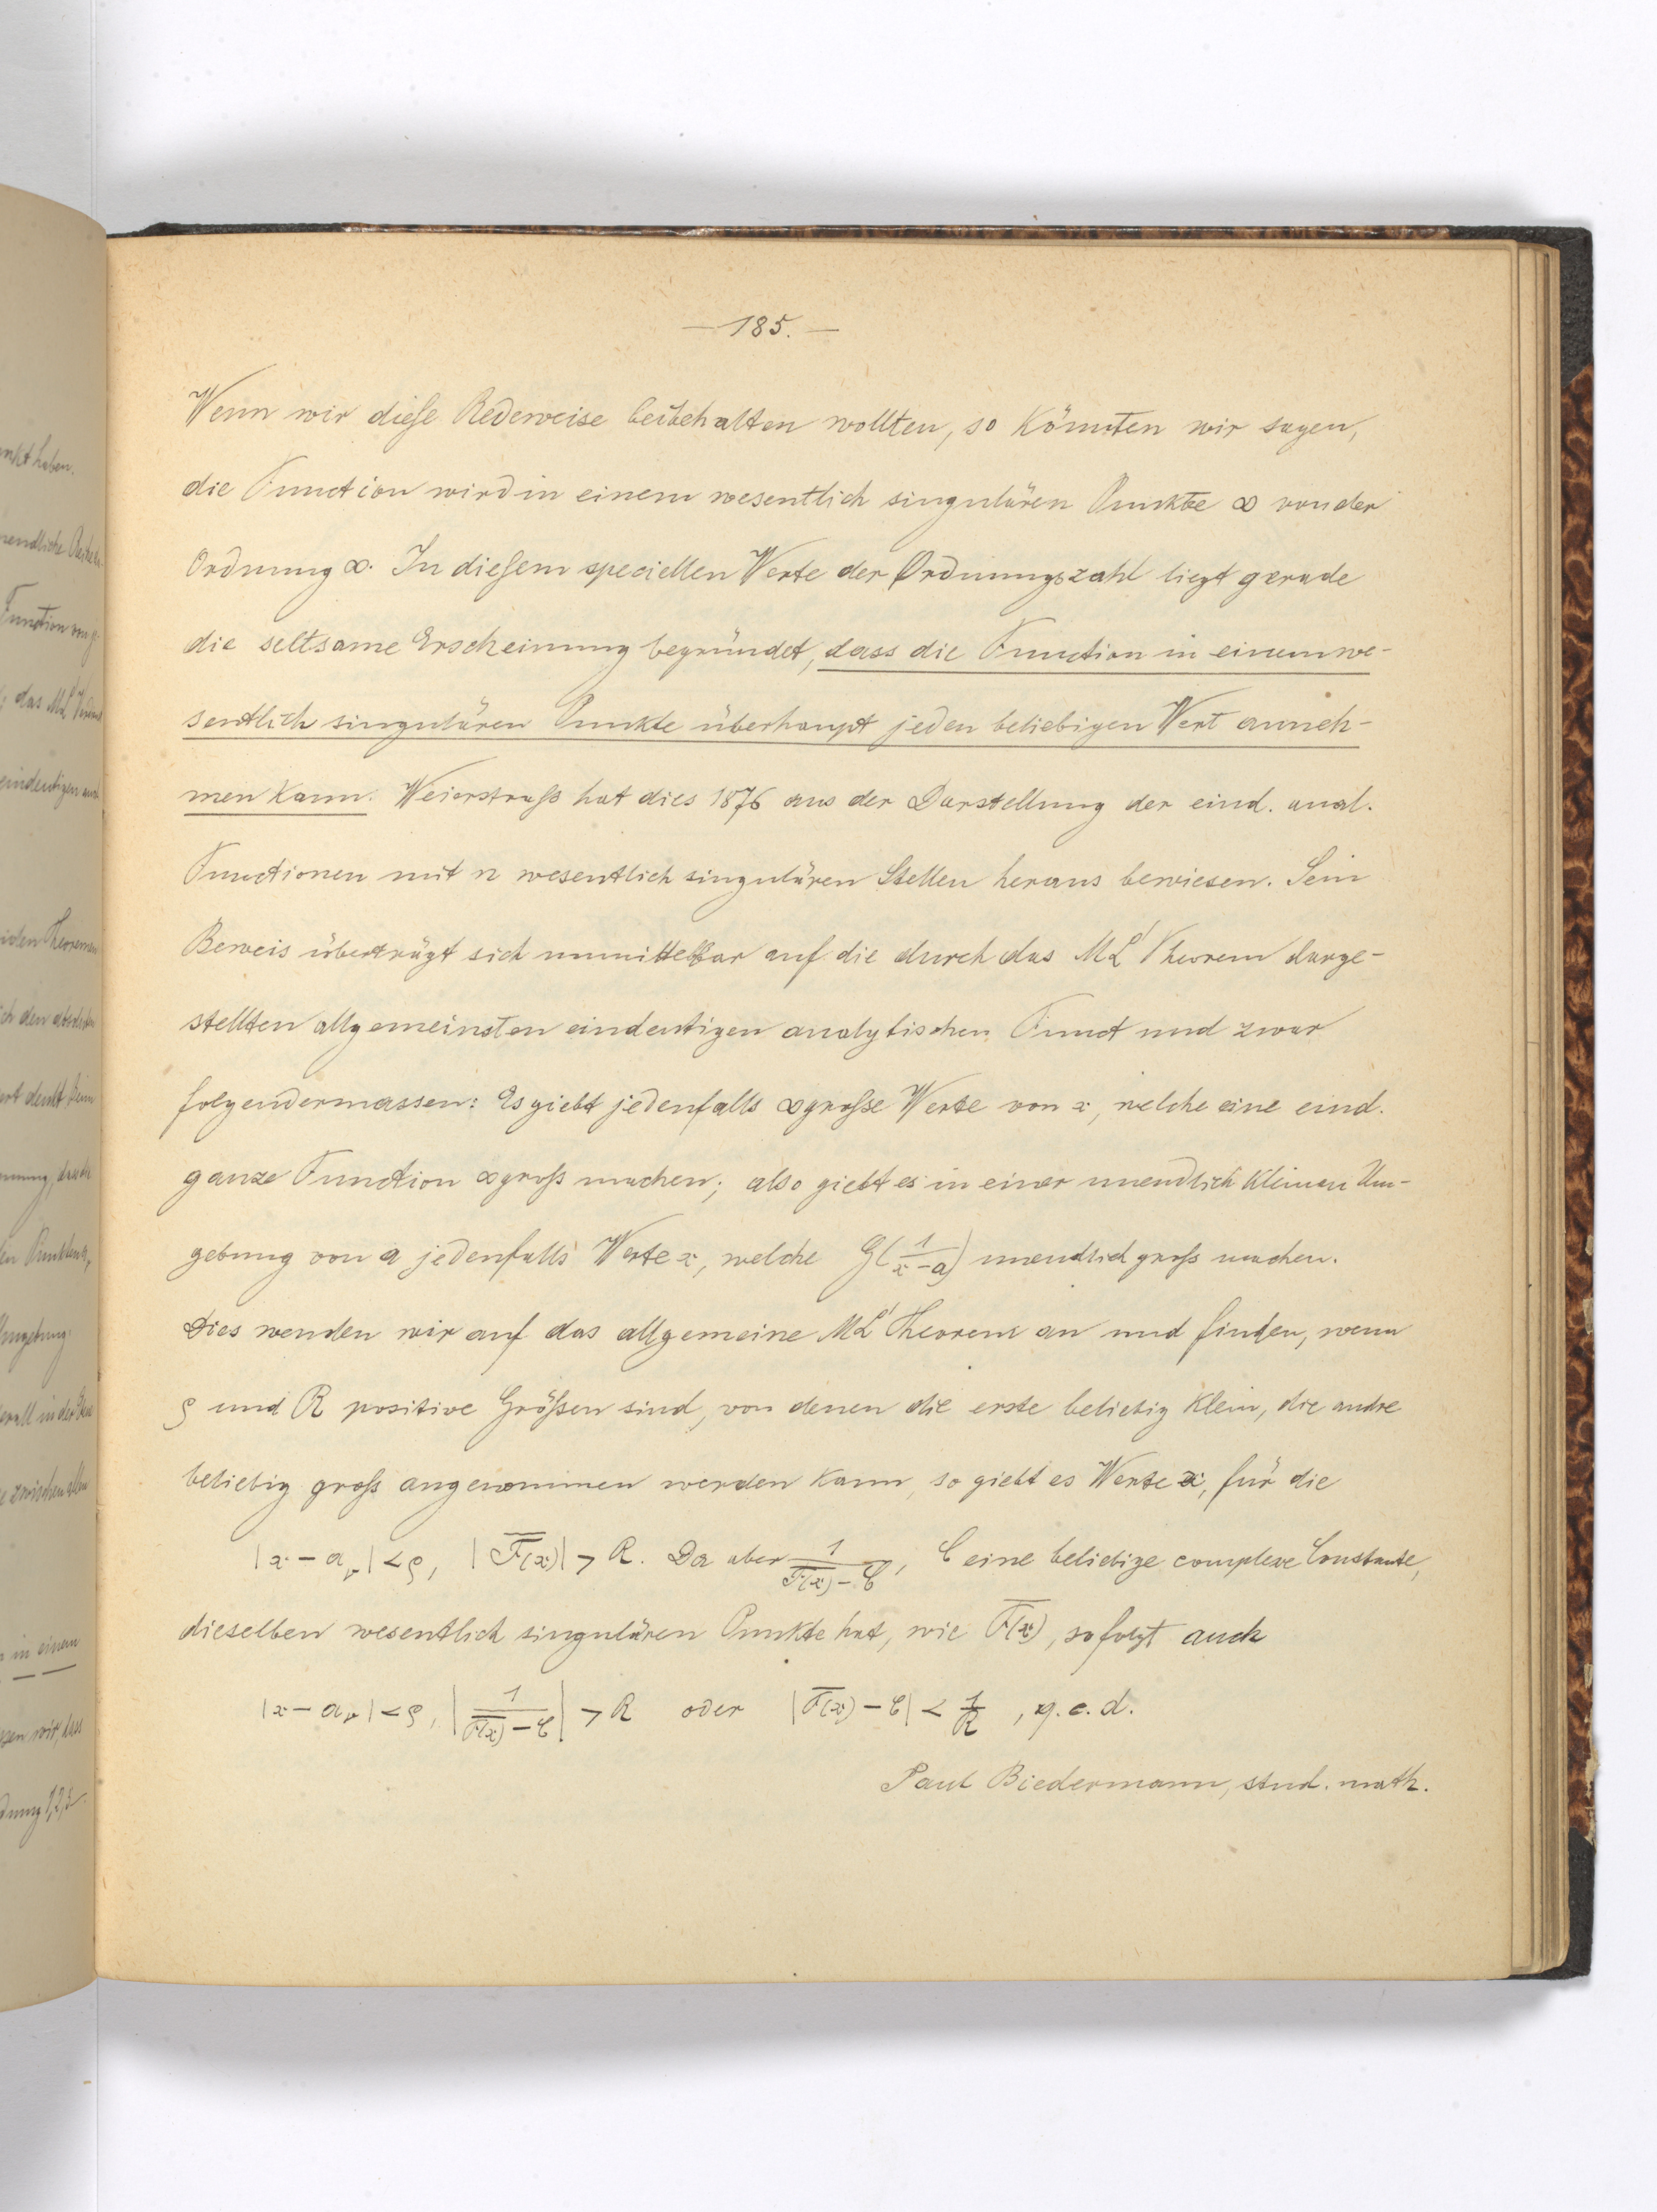 — 185. —
Wenn wir diese Redeweise beibehalten wollten, so könnten wir sagen,
die Function wird in einem wesentlich singulären Punkte ∞ von der
Ordnung ∞. In diesem speciellen Werte der Ordnungszahl liegt gerade
die seltsame Erscheinung begründet, dass die Function in einem we-
sentlich singulären Punkte überhaupt jeden beliebigen Wert anneh-
men kann. Weierstraß hat dies 1876 aus der Darstellung der eind. anal.
Functionen mit n wesentlich singulären Stellen heraus bewiesen. Sein
Beweis überträgt sich unmittelbar auf die durch das ML' Theorem darge-
stellten allgemeinsten eindeutigen analytischen Funct und zwar
folgendermassen: Es giebt jedenfalls ∞große Werte von x, welche eine eind.
ganze Function ∞groß machen; also giebt es in einer unendlich kleinen Um-
gebung von a jedenfalls Werte x, welche G(1/(x-a)) unendlich groß machen.
Dies wenden wir auf das allgemeine ML' Theorem an und finden, wenn
ρ und R positive Größen sind, von denen die erste beliebig klein, die andre
beliebig groß angenommen werden kann, so giebt es Werte x, für die
|x - aᵥ| < ρ, |F(x)| > R. Da aber 1/(F(x) - C), C eine beliebige complexe Constante,
dieselben wesentlich singulären Punkte hat, wie F(x), so folgt auch
|x - aᵥ| < ρ, |1/(F(x) - C)| > R oder |F(x) - C| < 1/R, q.e.d.
Paul Biedermann, stud. math.